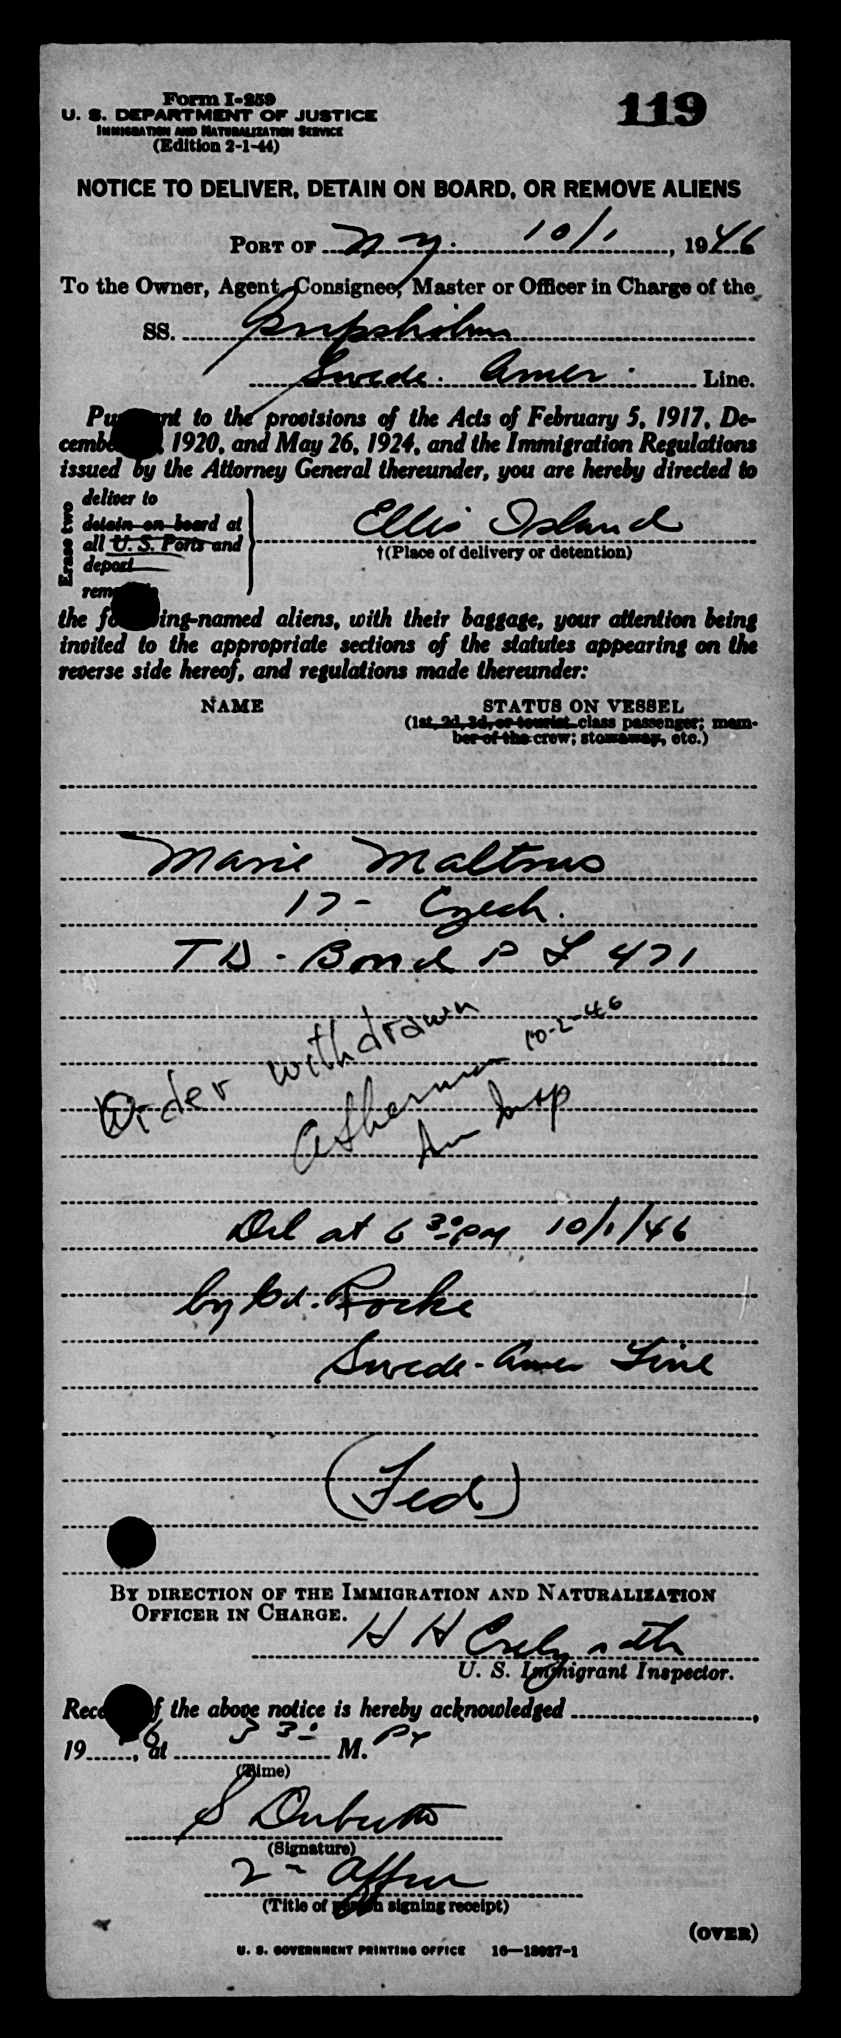 Form I-259
119
U. S. DEPARTMENT OF JUSTICE
IMMIGRATION AND NATURALIZATION SERVICE
(Edition 2-1-44)
NOTICE TO DELIVER, DETAIN ON BOARD, OR REMOVE ALIENS
PORT OF N Y. 10/1, 1946
To the Owner, Agent, Consignee, Master or Officer in Charge of the
SS. Gripsholm
Swede. Amer. Line.
Pursuant to the provisions of the Acts of February 5, 1917, De-
cember 1920, and May 26, 1924, and the Immigration Regulations
issued by the Attorney General thereunder, you are hereby directed to
Erase two
deliver to
detain on board at
all U. S. Ports and
deport
remove
Ellis Island
†(Place of delivery or detention)
the following-named aliens, with their baggage, your attention being
invited to the appropriate sections of the statutes appearing on the
reverse side hereof, and regulations made thereunder:
NAME STATUS ON VESSEL
(1st, 2d, 3d, or tourist class passenger; mem-
ber of the crew; stowaway, etc.)
Marie Maltrus
17 - Czech.
TD - Bond P L 471
Order withdrawn 10-2-46
Insp
Del at 6 30 PM 10/1/46
by Gd. Rocke
Swede-Amer Line
(Fed)
BY DIRECTION OF THE IMMIGRATION AND NATURALIZATION
OFFICER IN CHARGE.
H H
U. S. Immigrant Inspector.
Receipt of the above notice is hereby acknowledged ,
19 , at 5 30 M.
(Time)
S
(Signature)
2
(Title of person signing receipt)
(OVER)
U. S. GOVERNMENT PRINTING OFFICE 16—18087-1